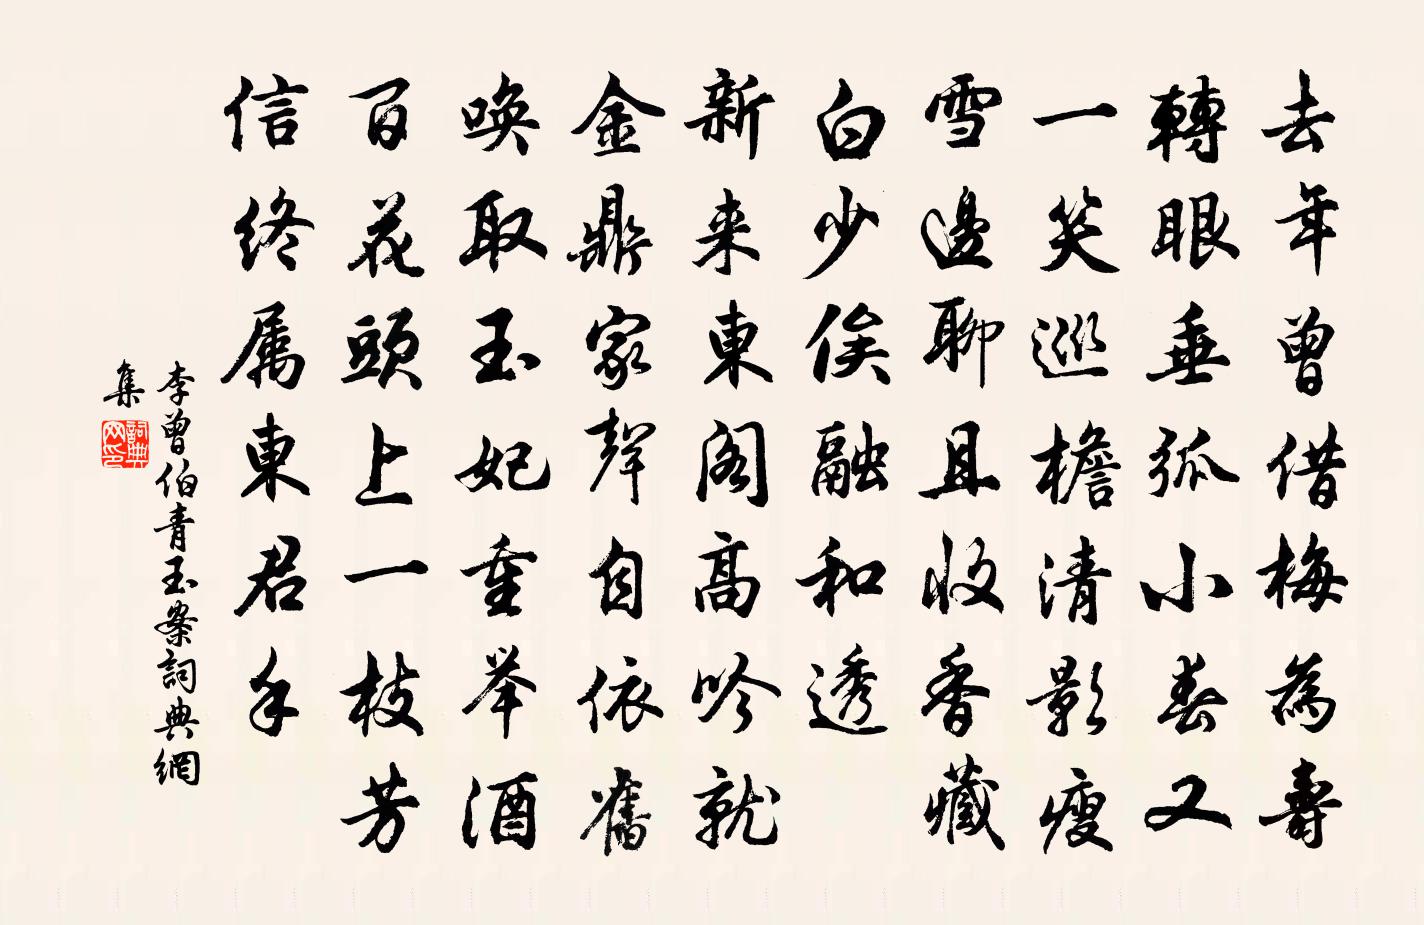 去年曾借梅為壽
轉眼垂弧小春又
一笑巡檐清影瘦
雪邊聊且收香藏
白少俟融和透
新来東閣高吟就
金鼎家聲自依舊
喚取玉妃重举酒
百花頭上一枝芳
信終属東君手
李曾伯青玉案詞典網
集
詞典
网印